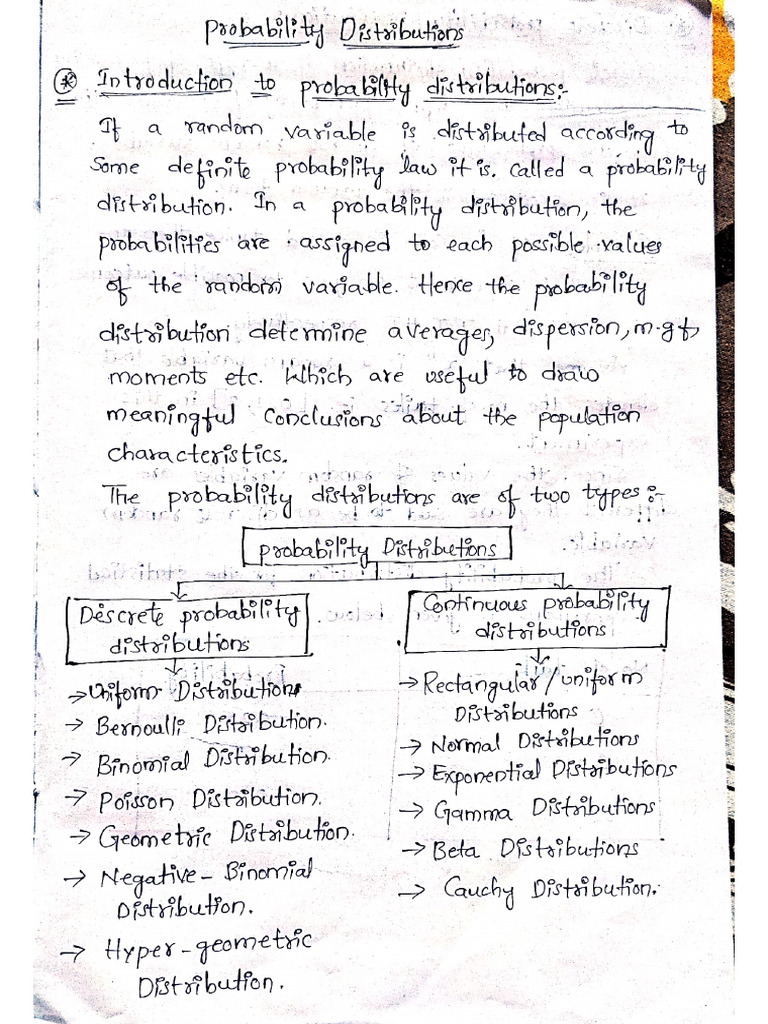 Probability Distributions
* Introduction to probability distributions:-
If a random variable is distributed according to
Some definite probability law it is. called a probability
distribution. In a probability distribution, the
probabilities are assigned to each possible values
of the random variable. Hence the probability
distribution determine averages, dispersion, m.g.f,
moments etc. Which are useful to draw
meaningful Conclusions about the population
characteristics.
The probability distributions are of two types:-
probability Distributions
Discrete probability
distributions
Continuous probability
distributions
→ Uniform Distributions
→ Bernoulli Distribution.
→ Binomial Distribution.
→ Poisson Distribution.
→ Geometric Distribution.
→ Negative-Binomial
Distribution.
→ Hyper-geometric
Distribution.
→ Rectangular/uniform
Distributions
→ Normal Distributions
→ Exponential Distributions
→ Gamma Distributions
→ Beta Distributions
→ Cauchy Distribution.